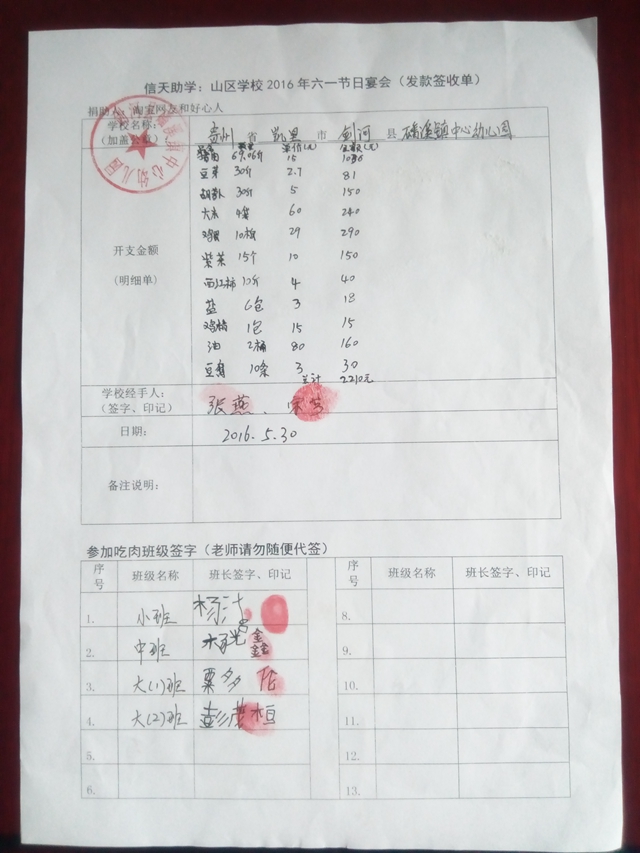 信天助学：山区学校 2016 年六一节日宴会（发款签收单）
捐助人：淘宝网友和好心人
学校名称：
（加盖公章） 贵州 省 凯里 市 剑河 县 磻溪镇中心幼儿园
数量 单价(元) 金额(元)
猪肉 69.06斤 15 1036
豆芽 30斤 2.7 81
胡萝卜 30斤 5 150
大米 4袋 60 240
鸡蛋 10板 29 290
紫菜 15个 10 150
西红柿 10斤 4 40
盐 6包 3 18
鸡精 1包 15 15
油 2桶 80 160
豆腐 10条 3 30
总计 2210元
开支金额
(明细单)
学校经手人：
（签字、印记） 张燕、
日期： 2016.5.30
备注说明：
参加吃肉班级签字（老师请勿随便代签）
序号 班级名称 班长签字、印记 序号 班级名称 班长签字、印记
1. 小班 8.
2. 中班 9.
3. 大(1)班 粟多 10.
4. 大(2)班 彭 桓 11.
5. 12.
6. 13.